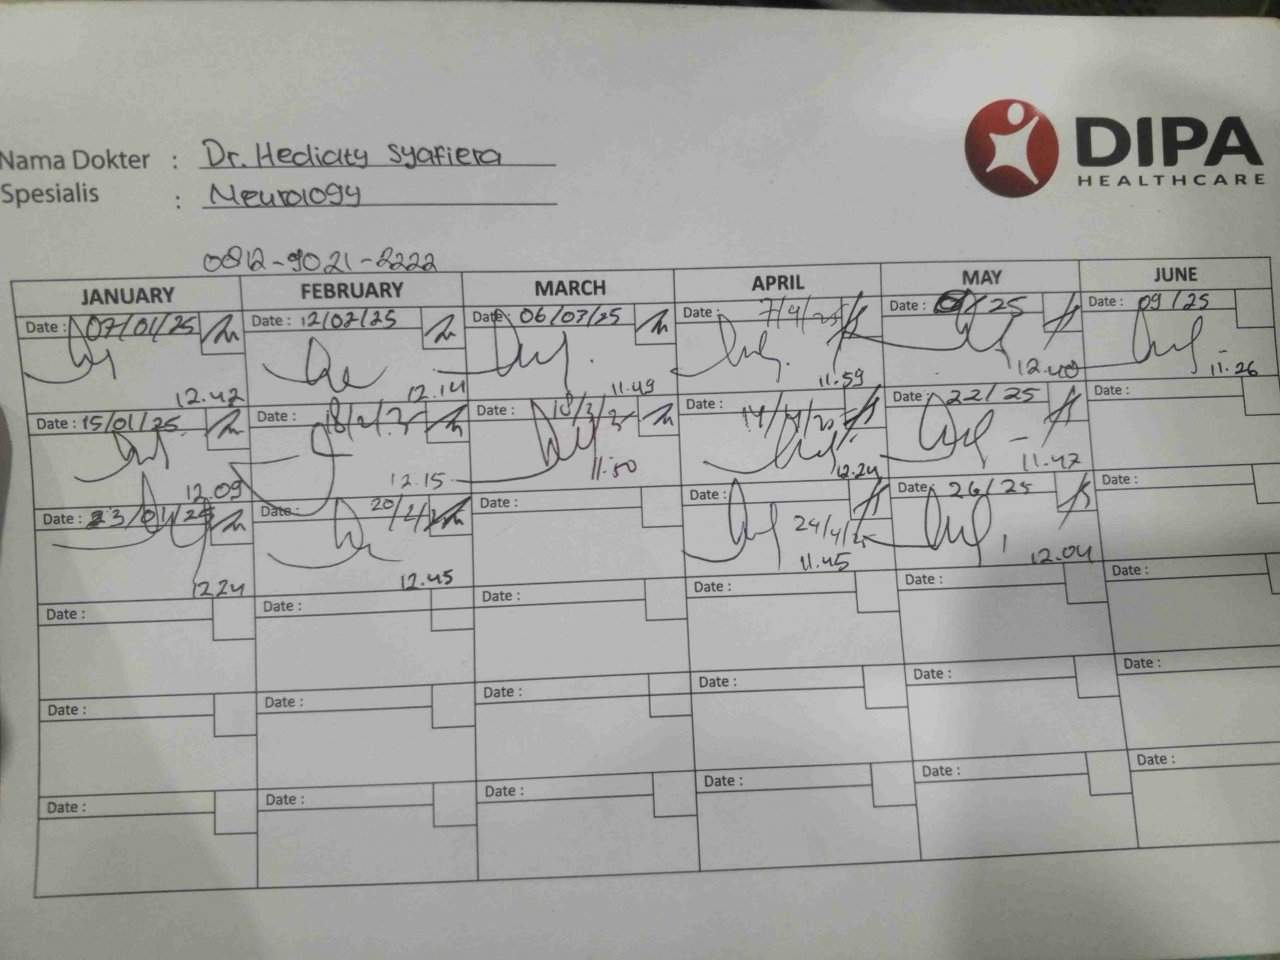 DIPA
HEALTHCARE
Nama Dokter : Dr. Hedicity Syafiera
Spesialis : Neurology
0812-9021-2222
JANUARY FEBRUARY MARCH APRIL MAY JUNE
Date : 07/01/25 Date : 12/02/25 Date : 06/03/25 Date : 7/4/25 Date : /25 Date : 09/25
12.42 12.14 11.49 11.59 12.40 11.26
Date : 15/01/25 Date : 18/2/25 Date : 18/3/25 Date : 14/4/25 Date : 22/25 Date :
12.09 12.15 11.50 12.24 11.47
Date : 23/01/25 Date : 20/2/ Date : Date : 24/4/25 Date : 26/25 Date :
12.24 12.45 11.45 12.04
Date : Date : Date : Date : Date : Date :
Date : Date : Date : Date : Date : Date :
Date : Date : Date : Date : Date : Date :